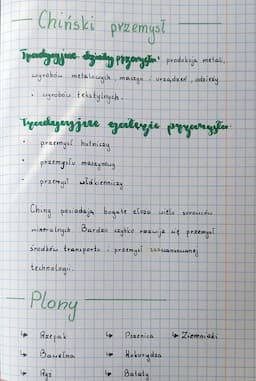 Chiński przemysł
Tradycyjne działy przemysłu: produkcja metali,
wyrobów metalowych, maszyn i urządzeń, odzieży
i wyrobów tekstylnych.
Tradycyjne gałęzie przemysłu:
• przemysł hutniczy
• przemysłu maszynowy
• przemysł włókienniczy
Chiny posiadają bogate złoża wielu surowców
mineralnych. Bardzo szybko rozwija się przemysł
środków transportu i przemysł zaawansowanej
technologii.
Plony
↳ Rzepak ↳ Pszenica ↳ Ziemniaki
↳ Bawełna ↳ Kukurydza
↳ Ryż ↳ Bataty